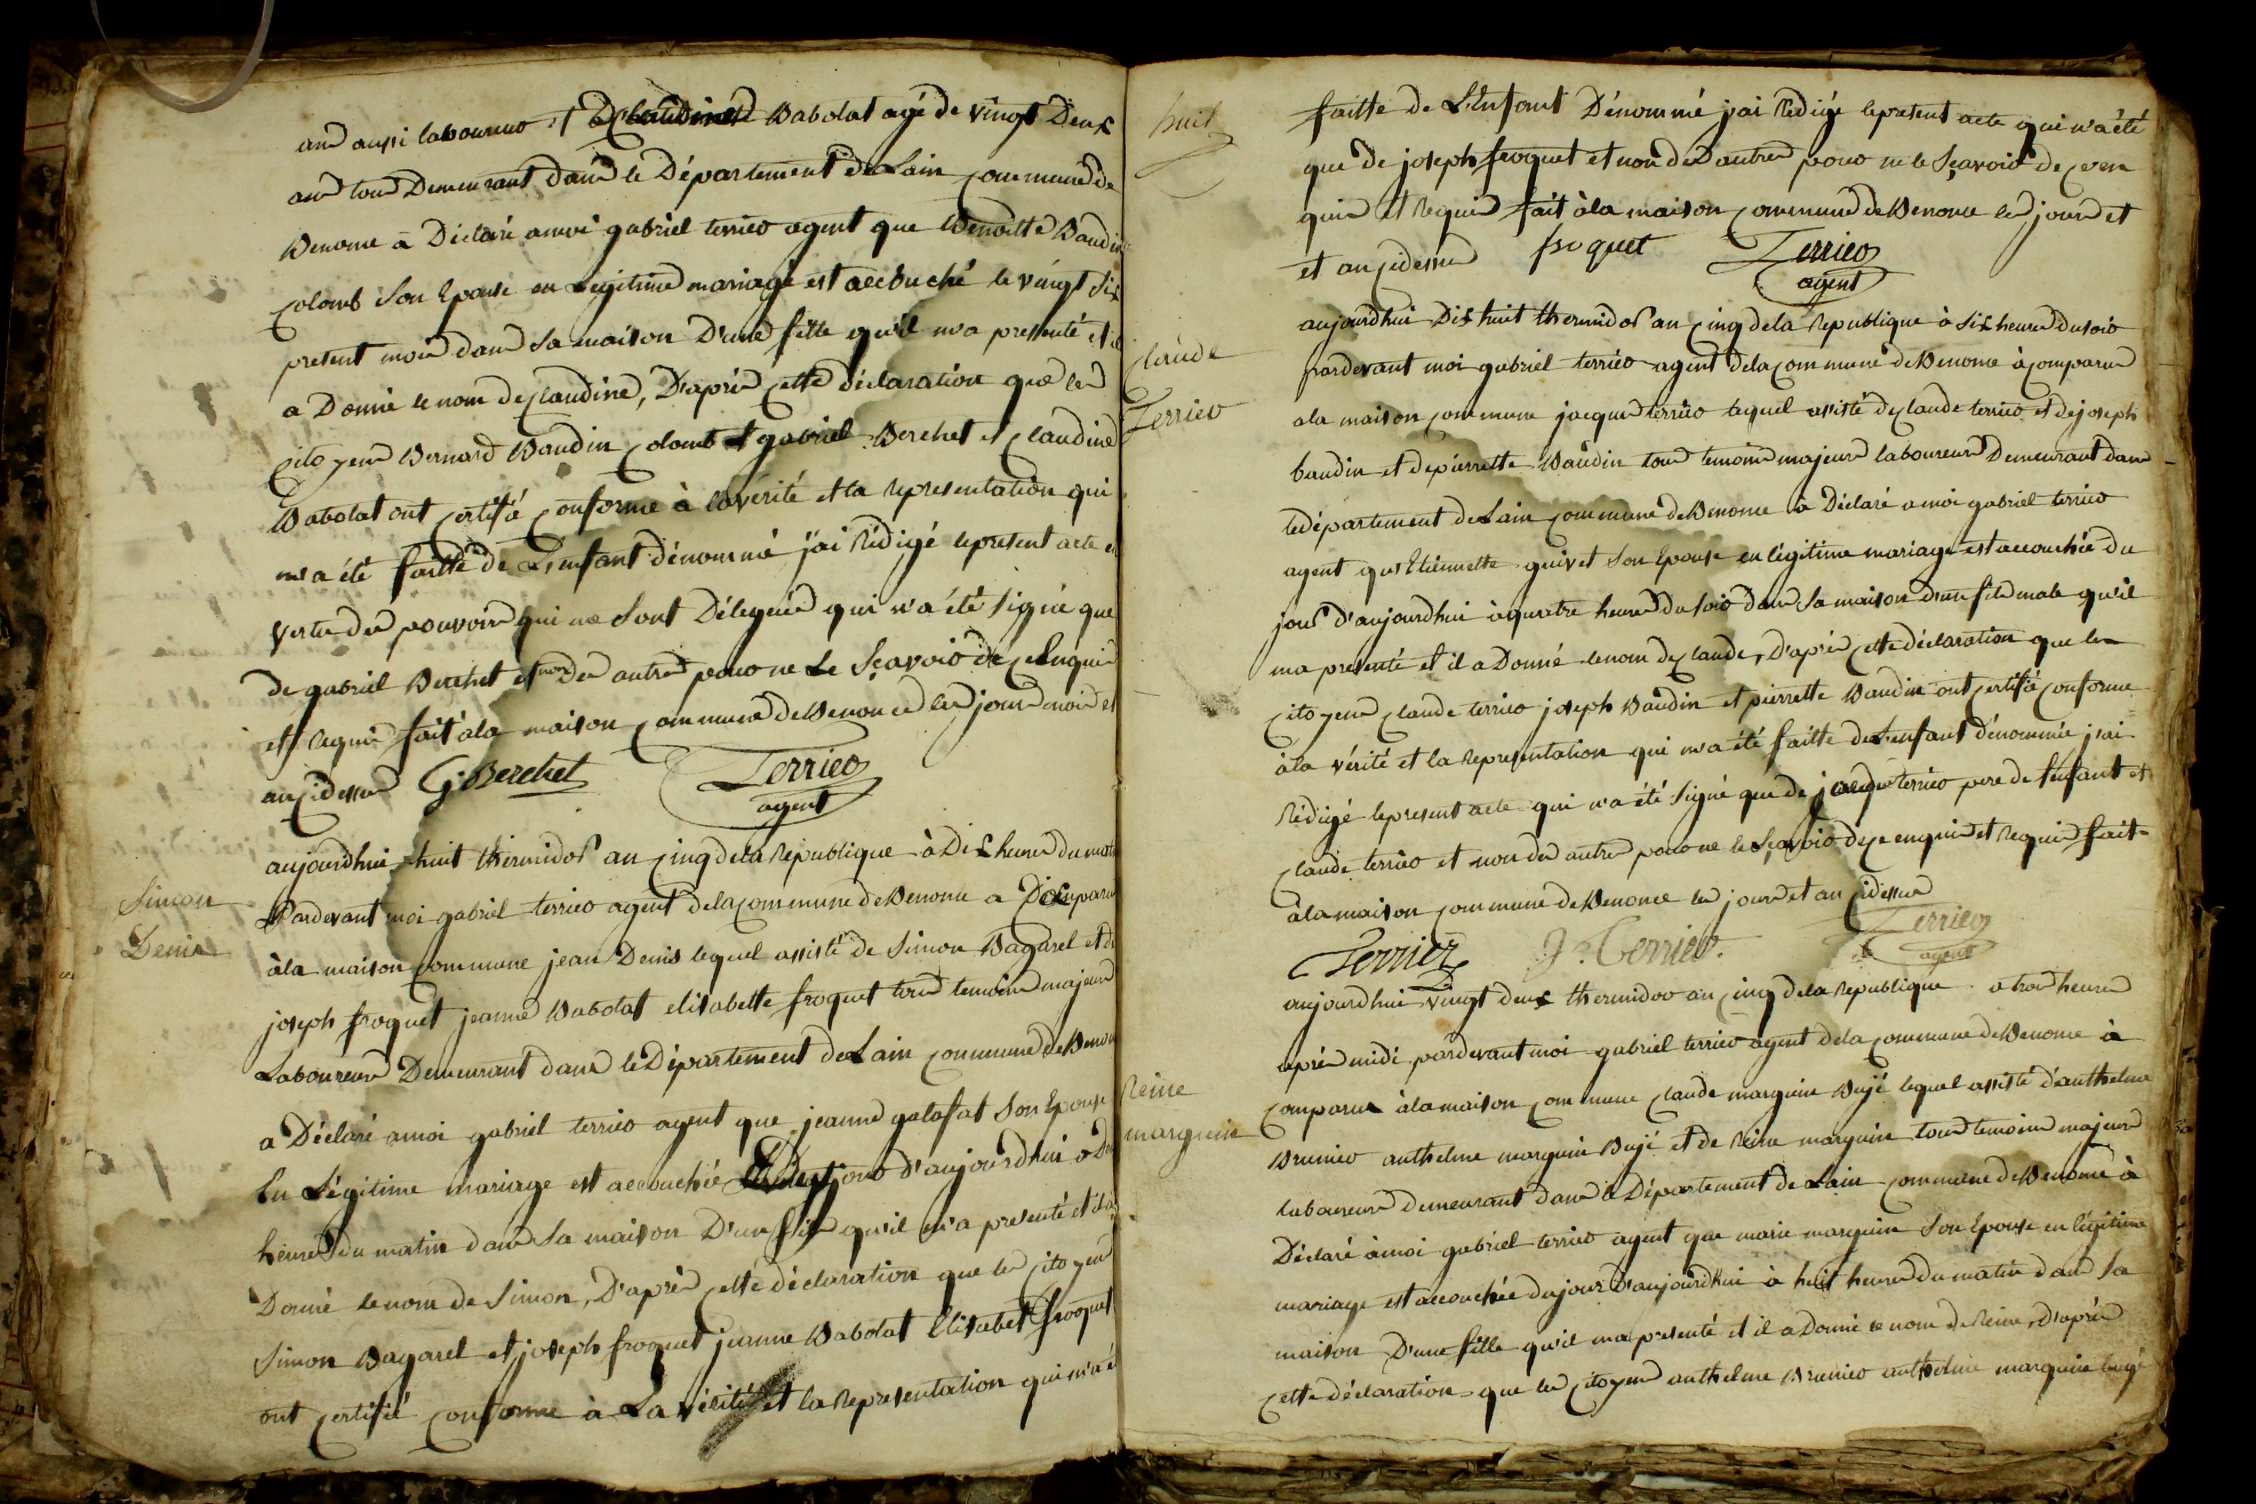 ans aussi laboureur et de Claudine Babolat agé de vingt Deux
ans tous Demeurant dans le Département de Lain commune de
Benonce a Déclaré a moi gabriel terrier agent que Benoitte Baudin
Colomb Son Epouse en Légitime mariage est accouché le vingt Six
present mois dans sa maison D'une fille qu'il m'a presenté et il
a Donné le nom de Claudine, D'après cette déclaration que les
Citoyens Bernard Baudin Colomb et gabriel Berchet et Claudine
Babolat ont Certifié Conforme à la vérité et la representation qui
m'a été faitte de L'enfant dénommé j'ai Rédigé le present acte en
vertu des pouvoirs qui me Sont Délégués qui n'a été signé que
de gabriel Berchet et non des autres pour ne Le Sçavoir de ce Enquis
et Requis fait à la maison Commune de Benonce les jours mois et
an Cidessus G. Berchet Terrier
agent
aujourdhui huit thermidor an Cinq de la Republique à Dix heures du matin
Pardevant moi gabriel terrier agent de la Commune de Benonce a Comparu
Simon
Denis
à la maison Commune jean Denis lequel assisté de Simon Bagarel et de
joseph froquet jeanne Babolat elisabette froquet tous temoins majeurs
Laboureurs Demeurant dans le Département de Lain Commune de Benonce
a Déclaré a moi gabriel terrier agent que jeanne galafat Son Epouse
En Légitime mariage est accouchée jour d'aujourdhui a Dix
heures du matin dans Sa maison D'un fils qu'il m'a presenté et il a
Donné le nom de Simon, D'après cette déclaration que les Citoyens
Simon Bagarel et joseph froquet jeanne Babolat Elisabet froquet
ont Certifié Conforme à La vérité et la representation qui m'a été
huit
faitte de L'Enfant Dénommé j'ai Rédigé le present acte qui n'a été
que de joseph froquet et non des autres pour ne le Sçavoir de ce en
quis et Requis fait à la maison Commune de Benonce les jours et
et an Cidessus froquet Terrier
agent
aujourdhui Dix huit thermidor an Cinq de la Republique à Six heures du soir
Claude
Terrier
pardevant moi gabriel terrier agent de la Commune de Benonce à Comparu
a la maison Commune jacques terrier lequel assisté de Claude terrier et de joseph
baudin et de pierrette Baudin tous temoins majeurs laboureurs Demeurant dans
le département de Lain Commune de Benonce à Déclaré a moi gabriel terrier
agent que Etiennette guivet Son Epouse en légitime mariage est accouchée du
jour d'aujourdhui à quatre heures du soir dans Sa maison d'un fils male qu'il
ma presenté et il a Donné le nom de Claude, D'après cette déclaration que les
Citoyens Claude terrier joseph Baudin et pierrette Baudin ont Certifié Conforme
à la vérité et la representation qui m'a été faitte de L'enfant dénommé j'ai
Rédigé le present acte qui n'a été Signé que de jacque terrier pere de l'enfant et
Claude terrier et non des autres pour ne le Sçavoir de ce enquis et Requis fait
à la maison Commune de Benonce les jours et an Cidessus
Terrier J. Terrier Terrier
agent
aujourdhui vingt deux thermidor an Cinq de la Republique a trois heures
après midi pardevant moi gabriel terrier agent de la Commune de Benonce à
Reine
marguin
Comparu à la maison Commune Claude marguin Bujé lequel assisté d'anthelme
Brunier anthelme marguin Bujé et de Reine marguin tous temoins majeurs
laboureurs demeurant dans le Département de Lain Commune de Benonce à
Déclaré à moi gabriel terrier agent que marie marguin Son Epouse en légitime
mariage est accouchée du jour d'aujourdhui à huit heures du matin dans Sa
maison D'une fille qu'il ma presenté et il a Donné le nom de Reine, D'après
Cette déclaration que les Citoyens anthelme Brunier anthelme marguin bujé